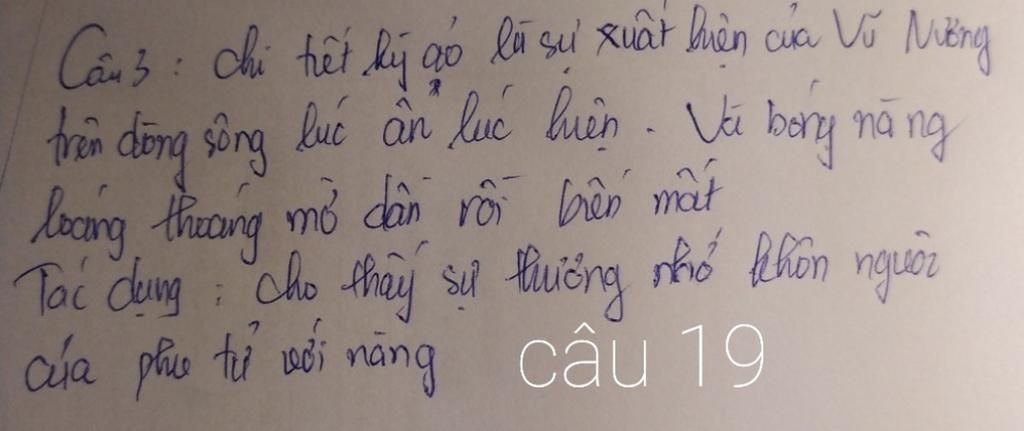 Câu 3: chi tiết kỳ ảo là sự xuất hiện của Vũ Nương
trên dòng sông lúc ẩn lúc hiện. Và bóng nàng
loáng thoáng mờ dần rồi biến mất
Tác dụng: cho thấy sự thương nhớ khôn nguôi
của phu tử với nàng
câu 19